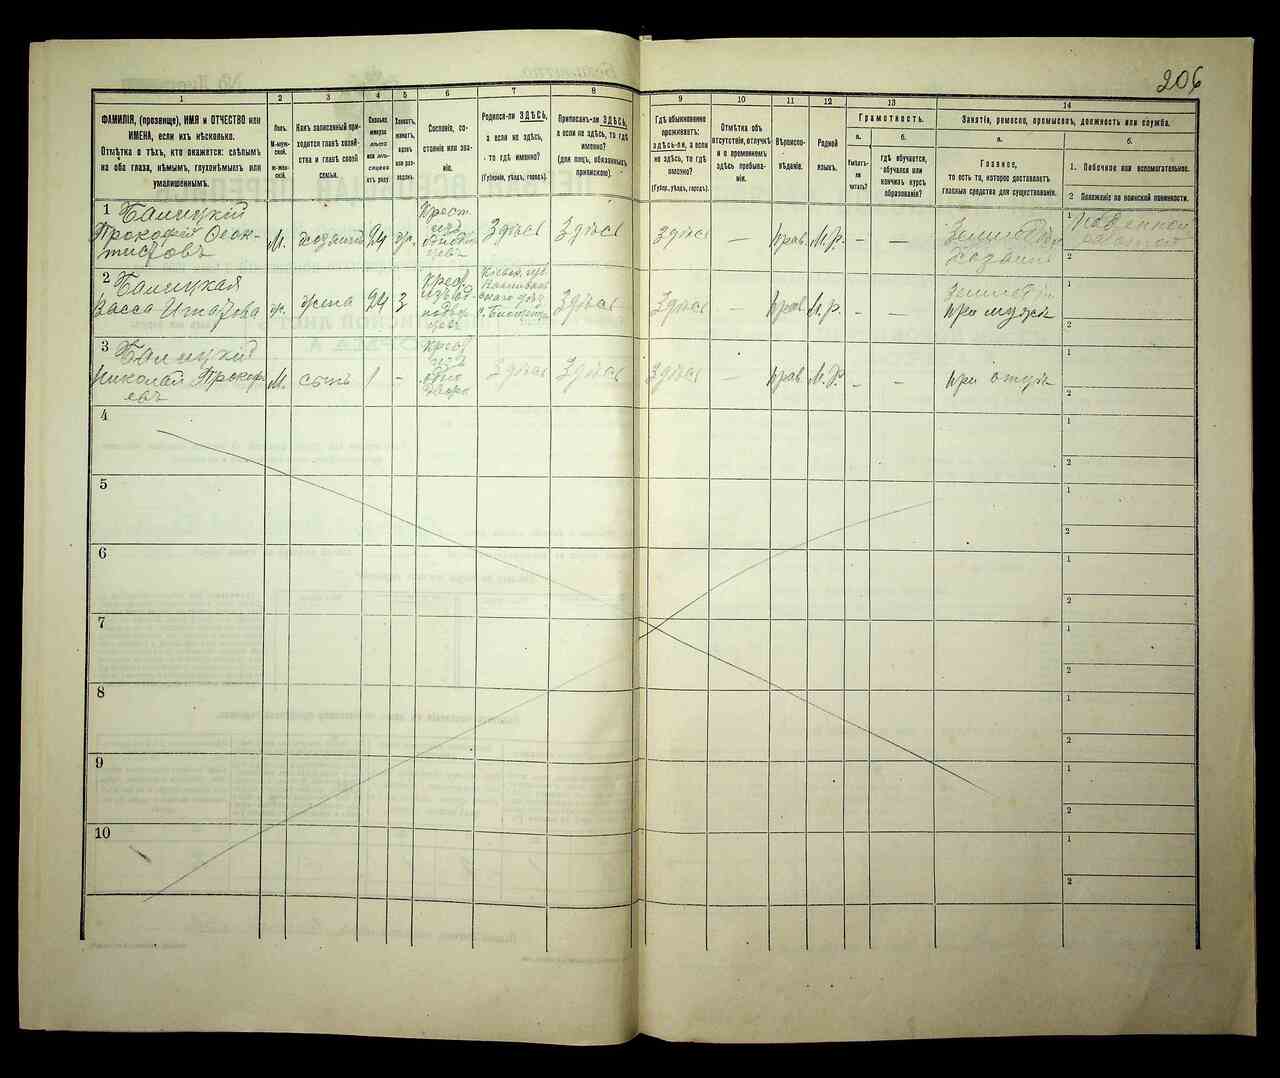 206
1 2 3 4 5 6 7 8 9 10 11 12 13 14
ФАМИЛІЯ, (прозвище), ИМЯ и ОТЧЕСТВО или
ИМЕНА, если ихъ нѣсколько.
Отмѣтка о тѣхъ, кто окажется: слѣпымъ
на оба глаза, нѣмымъ, глухонѣмымъ или
умалишеннымъ.
Полъ.
М-муж-
ской.
ж-жен-
скій.
Какъ записанный при-
ходится главѣ хозяй-
ства и главѣ своей
семьи.
Сколько
минуло
лѣтъ
или мѣ-
сяцевъ
отъ роду.
Холостъ,
женатъ,
вдовъ
или раз-
веденъ.
Сословіе, со-
стояніе или зва-
ніе.
Родился-ли ЗДѢСЬ,
а если не здѣсь,
то гдѣ именно?
(Губернія, уѣздъ, городъ).
Приписанъ-ли ЗДѢСЬ,
а если не здѣсь, то гдѣ
именно?
(для лицъ, обязанныхъ
припискою).
Гдѣ обыкновенно
проживаетъ:
здѣсь-ли, а если
не здѣсь, то гдѣ
именно?
(Губерн., уѣздъ, городъ).
Отмѣтка объ
отсутствіи, отлучкѣ
и о временномъ
здѣсь пребыва-
ніи.
Вѣроиспо-
вѣданіе.
Родной
языкъ.
Грамотность.
а.
Умѣетъ-
ли
читать?
б.
гдѣ обучается,
обучался или
кончилъ курсъ
образованія?
Занятіе, ремесло, промыселъ, должность или служба.
а.
Главное,
то есть то, которое доставляетъ
главныя средства для существованія.
б.
1. Побочное или вспомогательное.
2 Положеніе по воинской повинности.
1 Балицкій
Прокофій Феок-
тистовъ
М. хозяинъ 24 ж.
Крест
изъ
Здѣсь Здѣсь Здѣсь — Прав М.Р. — —
хозяинъ
1
2
2 Балицкая
Васса
ж. жена 24 З
Крест
изъ
Здѣсь Здѣсь — Прав М.Р. - -
при мужѣ
1
2
3 Балицкій
Николай Прокофь
евъ
М. сынъ 1 -
Крест
изъ
одно
двор
Здѣсь Здѣсь Здѣсь — Прав М.Р. - -
при отцѣ
1
2
4
1
2
5
1
2
6
1
2
7
1
2
8
1
2
9
1
2
10
1
2